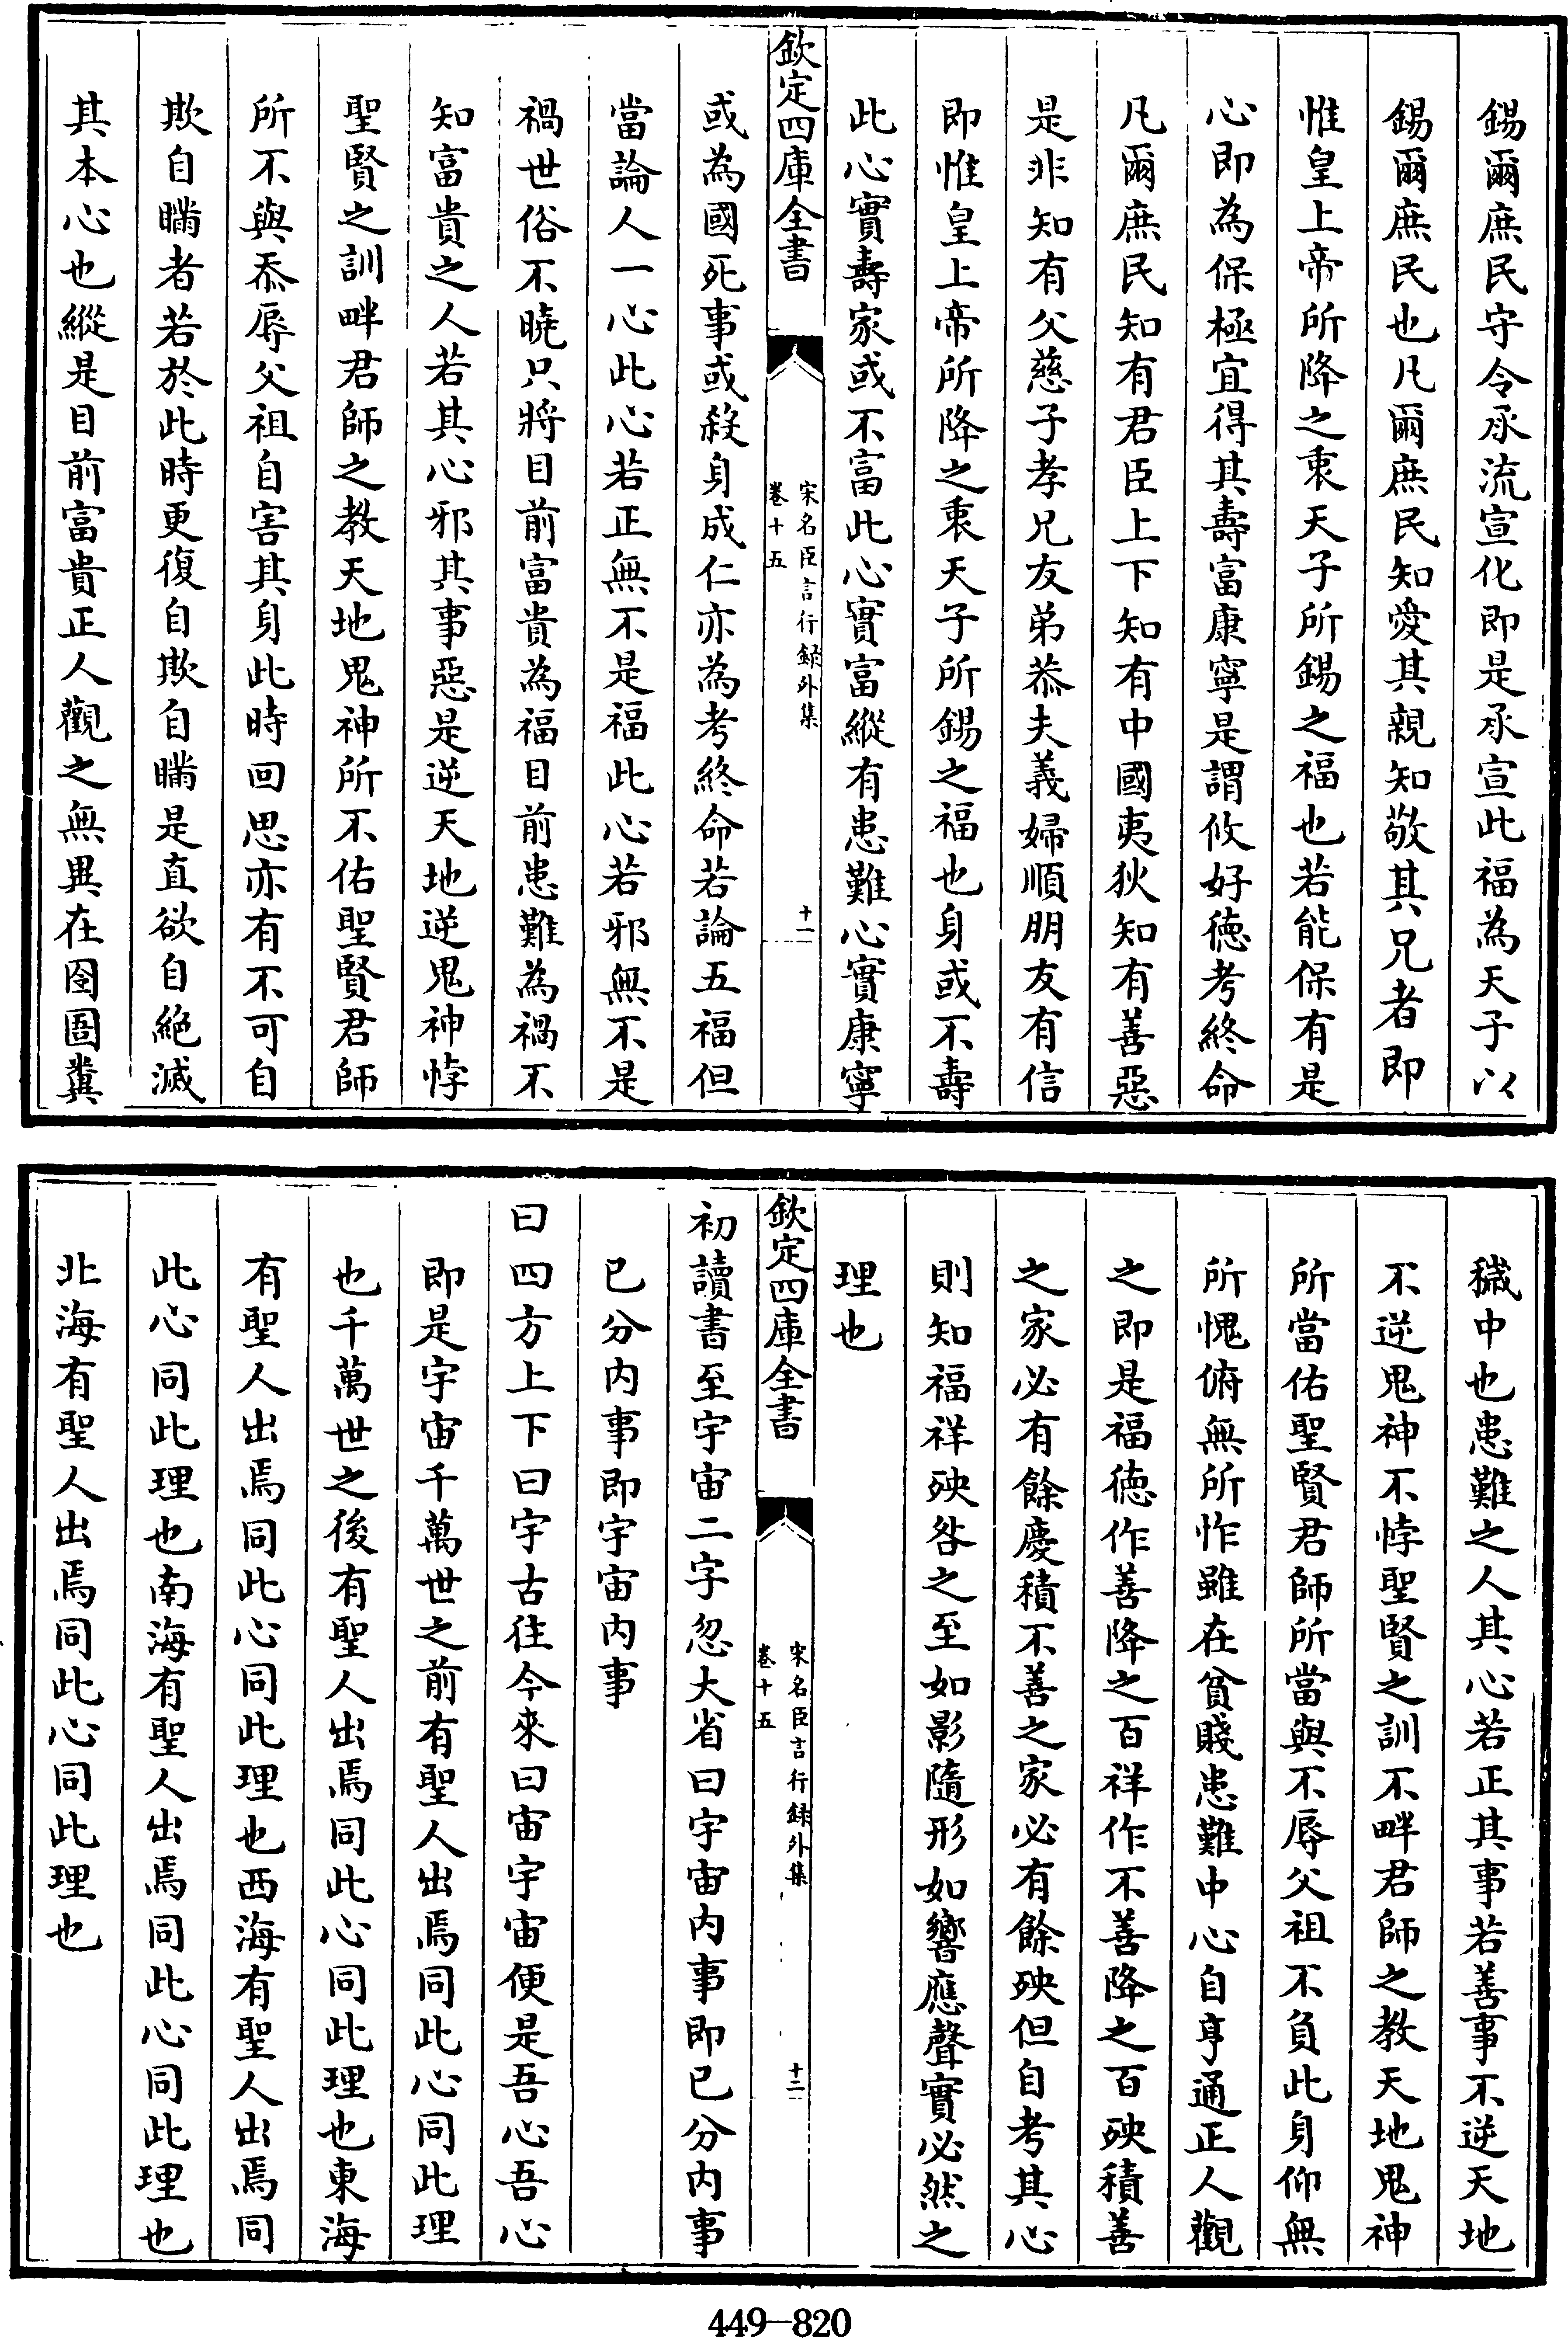 錫爾庶民守令承流宣化即是承宣此福為天子以
錫爾庶民也凡爾庶民知愛其親知敬其兄者即
惟皇上帝所降之衷天子所錫之福也若能保有是
心即為保極宜得其壽富康寧是謂攸好德考終命
凡爾庶民知有君臣上下知有中國夷狄知有善惡
是非知有父慈子孝兄友弟恭夫義婦順朋友有信
即惟皇上帝所降之衷天子所錫之福也身或不壽
此心實壽家或不富此心實富縱有患難心實康寧
欽定四庫全書
宋名臣言行録外集
卷十五
十一
或為國死事或殺身成仁亦為考終命若論五福但
當論人一心此心若正無不是福此心若邪無不是
禍世俗不曉只將目前富貴為福目前患難為禍不
知富貴之人若其心邪其事惡是逆天地逆鬼神悖
聖賢之訓畔君師之教天地鬼神所不佑聖賢君師
所不與忝辱父祖自害其身此時回思亦有不可自
欺自瞞者若於此時更復自欺自瞞是直欲自絶滅
其本心也縱是目前富貴正人觀之無異在囹圄糞
穢中也患難之人其心若正其事若善事不逆天地
不逆鬼神不悖聖賢之訓不畔君師之教天地鬼神
所當佑聖賢君師所當與不辱父祖不負此身仰無
所愧俯無所怍雖在貧賤患難中心自亨通正人觀
之即是福德作善降之百祥作不善降之百殃積善
之家必有餘慶積不善之家必有餘殃但自考其心
則知福祥殃咎之至如影隨形如響應聲實必然之
理也
欽定四庫全書
宋名臣言行録外集
卷十五
十二
初讀書至宇宙二字忽大省曰宇宙内事即已分内事
已分内事即宇宙内事
曰四方上下曰宇古往今來曰宙宇宙便是吾心吾心
即是宇宙千萬世之前有聖人出焉同此心同此理
也千萬世之後有聖人出焉同此心同此理也東海
有聖人出焉同此心同此理也西海有聖人出焉同
此心同此理也南海有聖人出焉同此心同此理也
北海有聖人出焉同此心同此理也
449-820